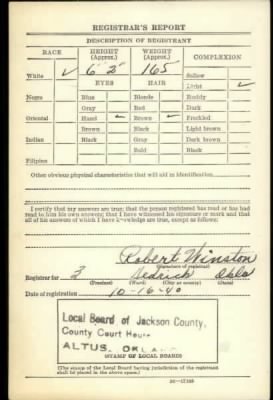 REGISTRAR'S REPORT
DESCRIPTION OF REGISTRANT
RACE HEIGHT (Approx.) WEIGHT (Approx.) COMPLEXION
White ✓ 6' 2" 165 Sallow
EYES HAIR Light ✓
Negro Blue Blonde Ruddy
Gray Red Dark
Oriental Hazel ✓ Brown ✓ Freckled
Brown Black Light brown
Indian Black Gray Dark brown
Bald Black
Filipino
Other obvious physical characteristics that will aid in identification
I certify that my answers are true; that the person registered has read or has had
read to him his own answers; that I have witnessed his signature or mark and that
all of his answers of which I have knowledge are true, except as follows:
Robert Winston
(Signature of registrar)
Registrar for 2 Hedrick Okla
(Precinct) (Ward) (City or county) (State)
Date of registration 10-16-40
Local Board of Jackson County,
County Court House
ALTUS, OKLA
STAMP OF LOCAL BOARD
(The stamp of the Local Board having jurisdiction of the registrant
shall be placed in the above space.)